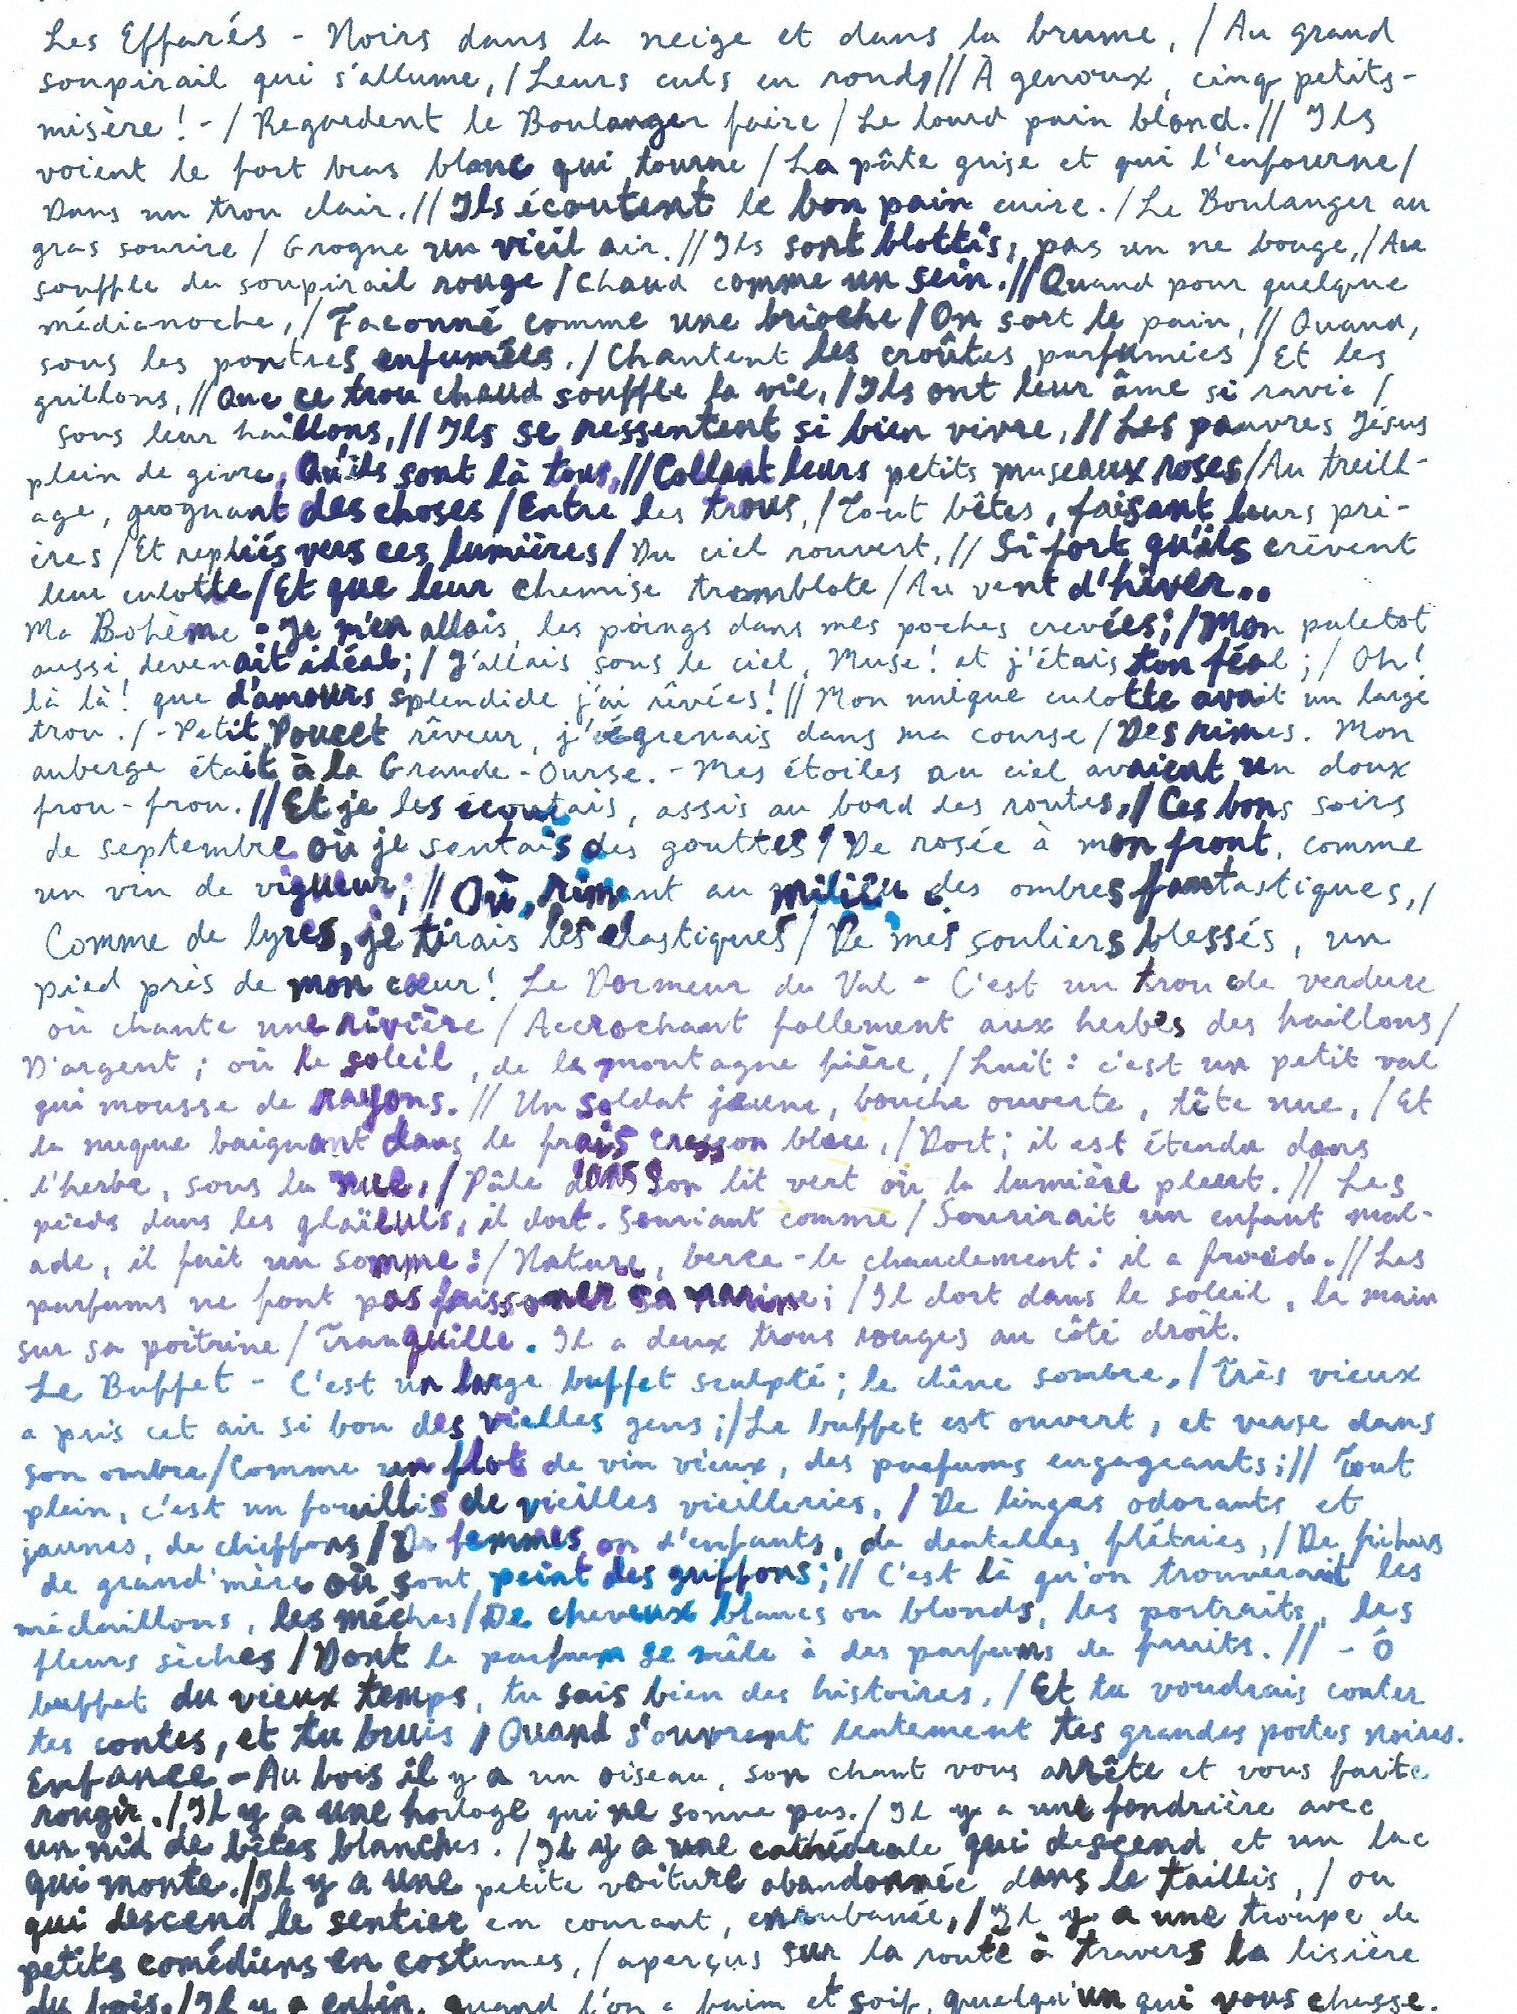 Les Effarés - Noirs dans la neige et dans la brume, / Au grand
soupirail qui s'allume, / Leurs culs en ronds // À genoux, cinq petits-
misère ! - / Regardent le Boulanger faire / Le lourd pain blond. // Ils
voient le fort bras blanc qui tourne / La pâte grise et qui l'enfourne /
Dans un trou clair. // Ils écoutent le bon pain cuire. / Le Boulanger au
gras sourire / Grogne un vieil air. // Ils sont blottis, pas un ne bouge, / Au
souffle du soupirail rouge / Chaud comme un sein. // Quand pour quelque
médianoche, / Faconné comme une brioche / On sort le pain, // Quand,
sous les poutres enfumées, / Chantent les croûtes parfumées / Et les
grillons, // Que ce trou chaud souffle la vie, / Ils ont leur âme si ravie /
sous leur haillons, // Ils se ressentent si bien vivre, // Les pauvres Jésus
plein de givre, Qu'ils sont là tous, // Collant leurs petits museaux roses / Au treill-
age, grognant des choses / Entre les trous, / Tout bêtes, faisant leurs pri-
ères / Et repliés vers ces lumières / Du ciel rouvert, // Si fort qu'ils crèvent
leur culotte / Et que leur chemise tremblote / Au vent d'hiver..
Ma Bohème - Je m'en allais, les poings dans mes poches crevées ; / Mon paletot
aussi devenait idéal ; / J'allais sous le ciel, Muse ! et j'étais ton féal ; / Oh !
là là ! que d'amours splendide j'ai rêvées ! // Mon unique culotte avait un large
trou. / - Petit Poucet rêveur, j'égrenais dans ma course / Des rimes. Mon
auberge était à la Grande-Ourse. - Mes étoiles au ciel avaient un doux
frou-frou. // Et je les écoutais, assis au bord des routes, / Ces bons soirs
de septembre où je sentais des gouttes / De rosée à mon front, comme
un vin de vigueur ; // Où, rimant au milieu des ombres fantastiques, /
Comme de lyres, je tirais les élastiques / De mes souliers blessés, un
pied près de mon cœur ! Le Dormeur du Val - C'est un trou de verdure
où chante une rivière / Accrochant follement aux herbes des haillons /
D'argent ; où le soleil, de la montagne fière, / Luit : c'est un petit val
qui mousse de rayons. // Un soldat jeune, bouche ouverte, tête nue, / Et
la nuque baignant dans le frais cresson bleu, / Dort ; il est étendu dans
l'herbe, sous la nue, / Pâle dans son lit vert où la lumière pleut. // Les
pieds dans les glaïeuls, il dort. Souriant comme / Sourirait un enfant mal-
ade, il fait un somme : / Nature, berce-le chaudement : il a froid. // Les
parfums ne font pas frissonner sa narine ; / Il dort dans le soleil, la main
sur sa poitrine / Tranquille. Il a deux trous rouges au côté droit.
Le Buffet - C'est un large buffet sculpté ; le chêne sombre, / Très vieux
a pris cet air si bon des vielles gens ; / Le buffet est ouvert, et verse dans
son ombre / Comme un flot de vin vieux, des parfums engageants ; // Tout
plein, c'est un fouillis de vieilles vieilleries, / De linges odorants et
jaunes, de chiffons / De femmes ou d'enfants, de dentelles flétries, / De fichus
de grand'mère où sont peint des griffons ; // C'est là qu'on trouverait les
médaillons, les mèches / De cheveux blancs ou blonds, les portraits, les
fleurs sèches / Dont le parfum se mêle à des parfums de fruits. // - Ô
buffet du vieux temps, tu sais bien des histoires, / Et tu voudrais conter
tes contes, et tu bruis / Quand s'ouvrent lentement tes grandes portes noires.
Enfance - Au bois il y a un oiseau, son chant vous arrête et vous faite
rougir. / Il y a une horloge qui ne sonne pas. / Il y a une fondrière avec
un nid de bêtes blanches. / Il y a une cathédrale qui descend et un lac
qui monte. / Il y a une petite voiture abandonnée dans le taillis, / ou
qui descend le sentier en courant, enrubanée, / Il y a une troupe de
petits comédiens en costumes, / aperçus sur la route à travers la lisière
du bois. / Il y a enfin, quand l'on a faim et soif, quelqu'un qui vous chasse.